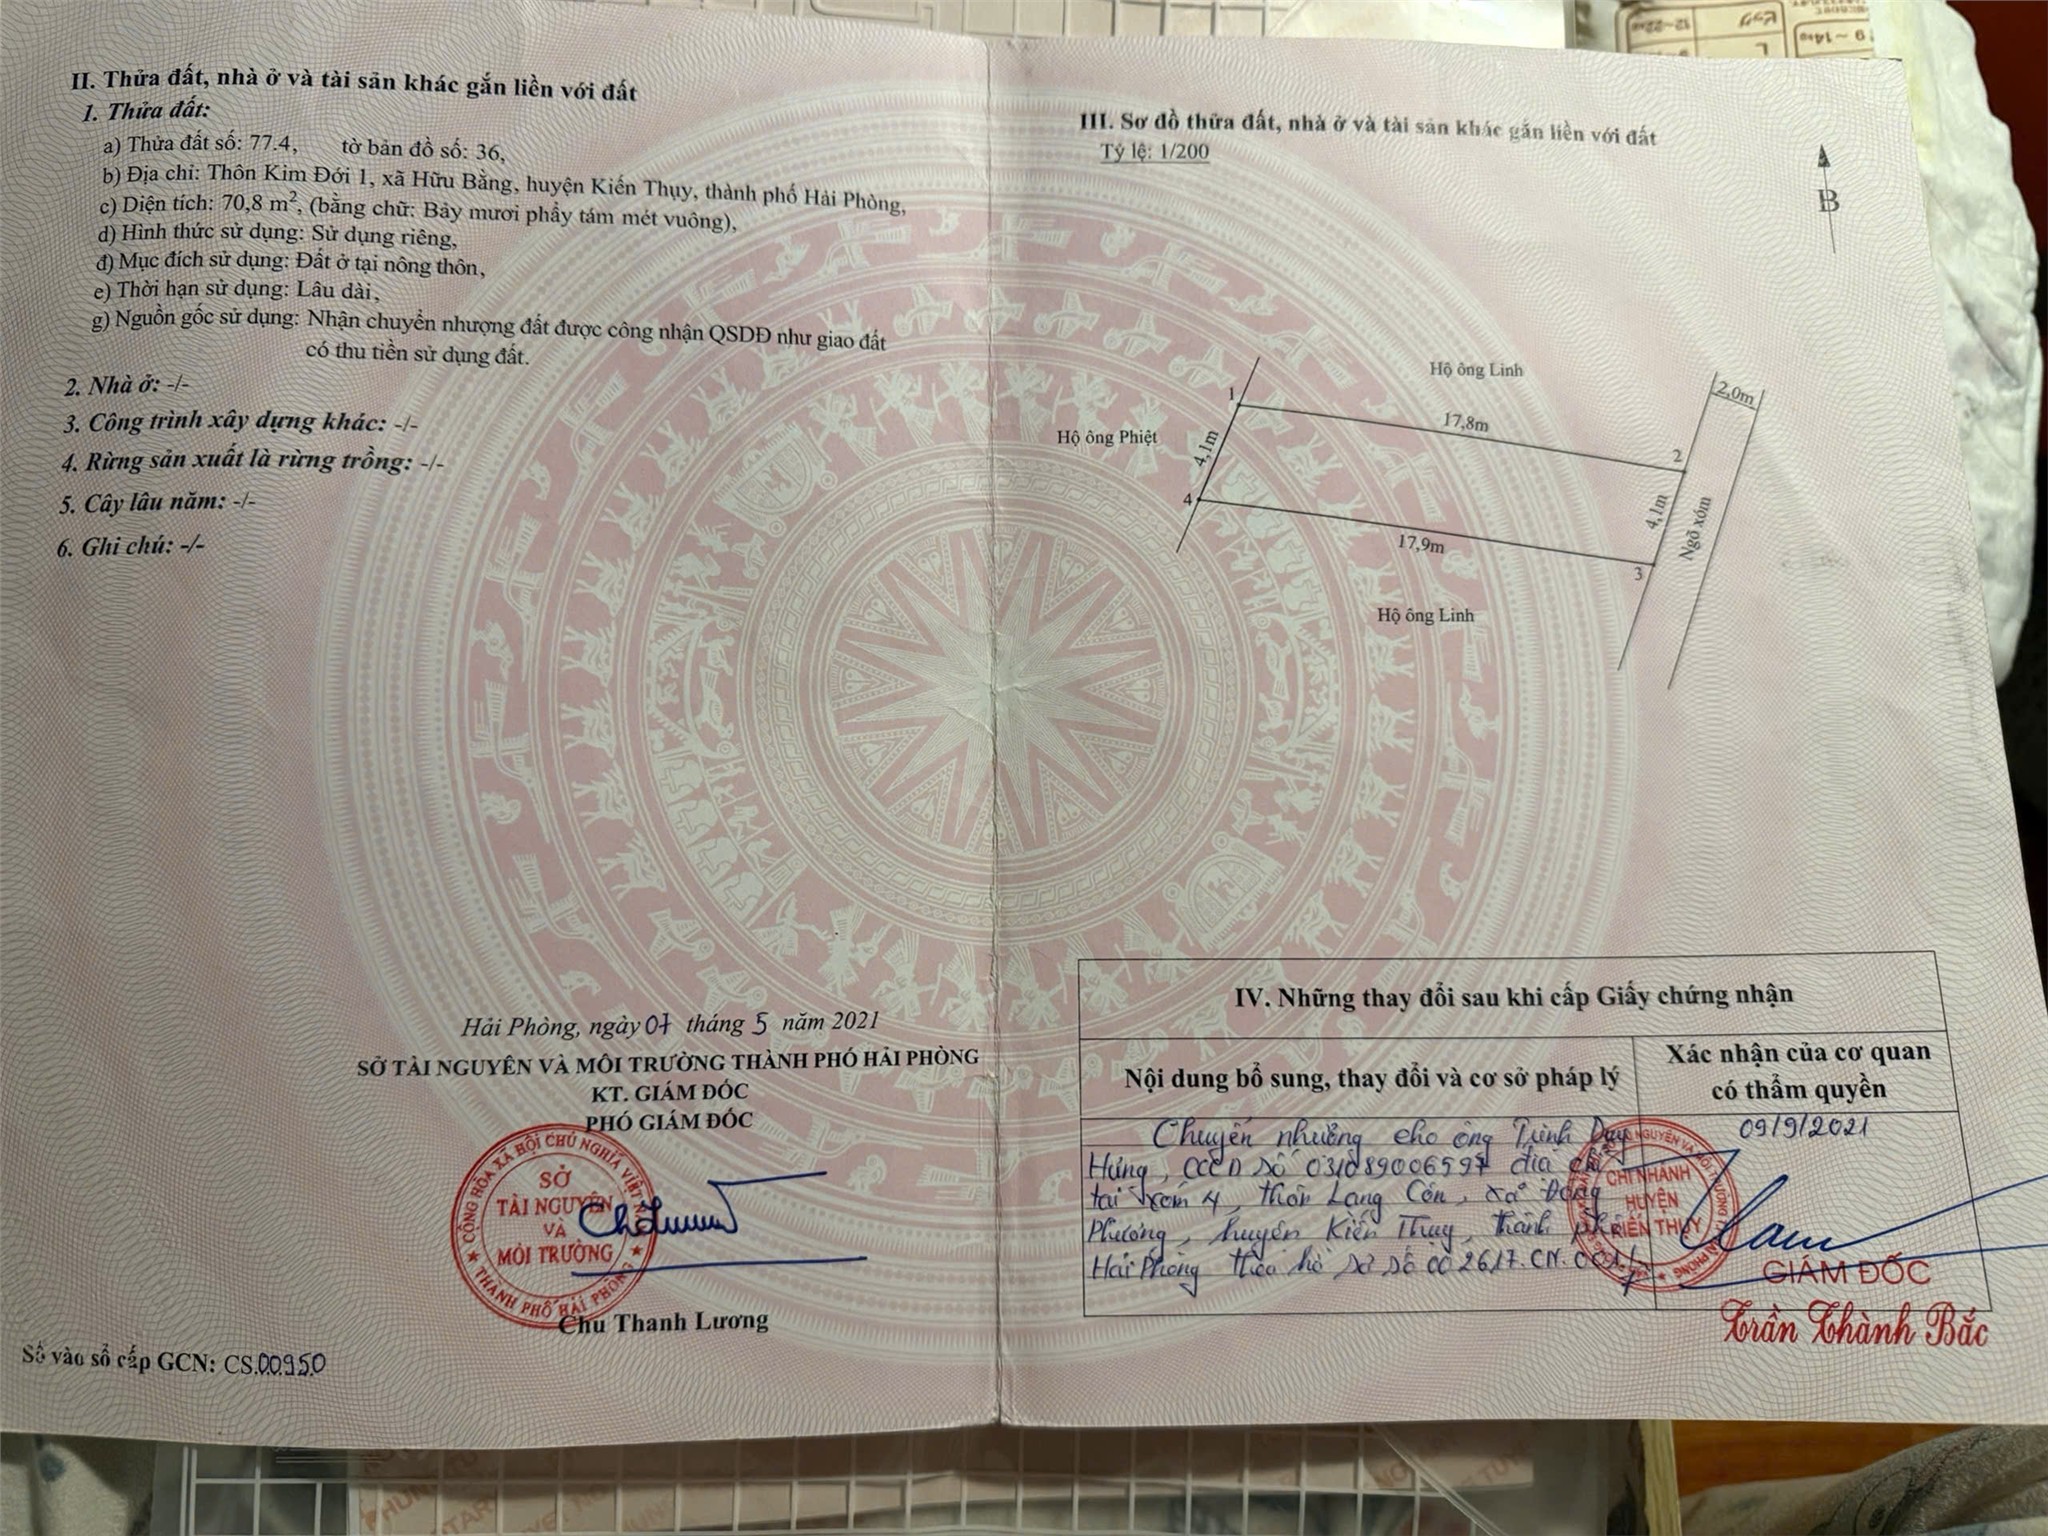 II. Thửa đất, nhà ở và tài sản khác gắn liền với đất
1. Thửa đất:
a) Thửa đất số: 77.4, tờ bản đồ số: 36,
b) Địa chỉ: Thôn Kim Đới 1, xã Hữu Bằng, huyện Kiến Thụy, thành phố Hải Phòng,
c) Diện tích: 70,8 m², (bằng chữ: Bảy mươi phẩy tám mét vuông),
d) Hình thức sử dụng: Sử dụng riêng,
đ) Mục đích sử dụng: Đất ở tại nông thôn,
e) Thời hạn sử dụng: Lâu dài,
g) Nguồn gốc sử dụng: Nhận chuyển nhượng đất được công nhận QSDĐ như giao đất
có thu tiền sử dụng đất.
2. Nhà ở: -/-
3. Công trình xây dựng khác: -/-
4. Rừng sản xuất là rừng trồng: -/-
5. Cây lâu năm: -/-
6. Ghi chú: -/-
Hải Phòng, ngày 07 tháng 5 năm 2021
SỞ TÀI NGUYÊN VÀ MÔI TRƯỜNG THÀNH PHỐ HẢI PHÒNG
KT. GIÁM ĐỐC
PHÓ GIÁM ĐỐC
CỘNG HÒA XÃ HỘI CHỦ NGHĨA VIỆT NAM
SỞ
TÀI NGUYÊN
VÀ
MÔI TRƯỜNG
THÀNH PHỐ HẢI PHÒNG
Chu Thanh Lương
Số vào sổ cấp GCN: CS.00950
III. Sơ đồ thửa đất, nhà ở và tài sản khác gắn liền với đất
Tỷ lệ: 1/200
B
Hộ ông Linh
2,0m
1
17,8m
Hộ ông Phiệt
4,1m
2
4
4,1m
Ngõ xóm
17,9m
3
Hộ ông Linh
IV. Những thay đổi sau khi cấp Giấy chứng nhận
Nội dung bổ sung, thay đổi và cơ sở pháp lý
Xác nhận của cơ quan
có thẩm quyền
Chuyển nhượng cho ông Trịnh Duy
Hưng, CCCD số 031089006597 địa chỉ
tại xóm 4, thôn Lạng Côn, xã Đông
Phương, huyện Kiến Thụy, thành phố
Hải Phòng theo hồ sơ số 002617.CN.001
09/9/2021
CHI NHÁNH
HUYỆN
KIẾN THỤY
GIÁM ĐỐC
Trần Thành Bắc